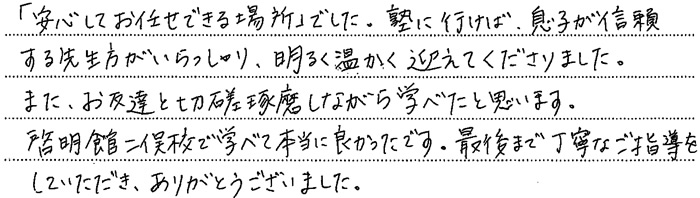 「安心してお任せできる場所」でした。塾に行けば、息子が信頼
する先生方がいらっしゃり、明るく温かく迎えてくださりました。
また、お友達と切磋琢磨しながら学べたと思います。
啓明館二俣校で学べて本当に良かったです。最後まで丁寧なご指導を
していただき、ありがとうございました。